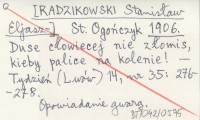 [RADZIKOWSKI Stanisław
Eljasz-]
St. Ogończyk 1906.
Duse cłowiecej nie złomis,
kieby palice na kolenie! —
Tydzień (Lwów) 14, nr 35: 276-
-278.
Opowiadanie gwarą.
37/042/0595